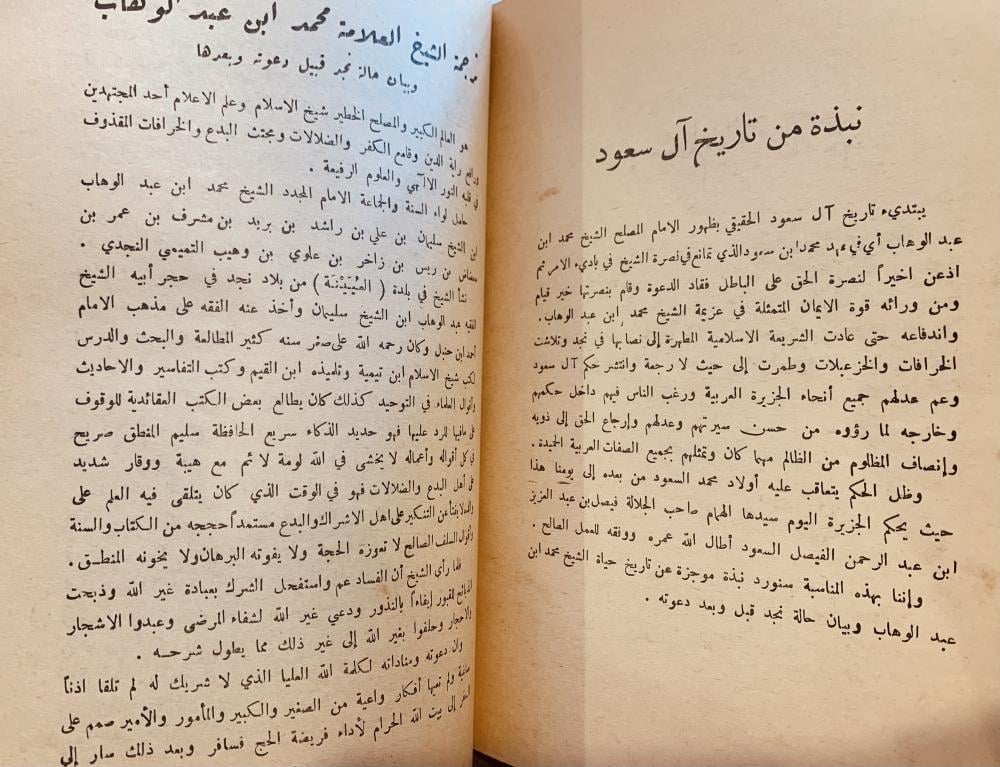 نبذة من تاريخ آل سعود
يبتديء تاريخ آل سعود الحقيقي بظهور الامام المصلح الشيخ محمد ابن
عبد الوهاب أي في عهد محمد ابن سعود الذي تمانع في نصرة الشيخ في باديء الامر ثم
اذعن اخيراً لنصرة الحق على الباطل فقاد الدعوة وقام بنصرتها خير قيام
ومن ورائه قوة الايمان المتمثلة في عزيمة الشيخ محمد ابن عبد الوهاب .
واندفاعه حتى عادت الشريعة الاسلامية المطهرة إلى نصابها في نجد وتلاشت
الخرافات والخزعبلات وطمرت إلى حيث لا رجعة وانتشر حكم آل سعود
وعم عدلهم جميع أنحاء الجزيرة العربية ورغب الناس فيهم داخل حكمهم
وخارجه لما رؤوه من حسن سيرتهم وعدلهم وإرجاع الحق إلى ذويه
وإنصاف المظلوم من الظالم مهما كان وتمثلهم بجميع الصفات العربية الحميدة .
وظل الحكم يتعاقب عليه أولاد محمد السعود من بعده إلى يومنا هذا
حيث يحكم الجزيرة اليوم سيدها الهمام صاحب الجلالة فيصل بن عبد العزيز
ابن عبد الرحمن الفيصل السعود أطال الله عمره ووفقه للعمل الصالح .
وإننا بهذه المناسبة سنورد نبذة موجزة عن تاريخ حياة الشيخ محمد ابن
عبد الوهاب وبيان حالة نجد قبل وبعد دعوته .
ترجمة الشيخ العلامة محمد ابن عبد الوهاب
وبيان حالة نجد قبيل دعوته وبعدها
هو العالم الكبير والمصلح الخطير شيخ الاسلام وعلم الاعلام أحد المجتهدين
ورافع راية الدين وقامع الكفر والضلالات ومجتث البدع والخرافات المقذوف
في قلبه النور الآلهي والعلوم الرفيعة .
حامل لواء السنة والجماعة الامام المجدد الشيخ محمد ابن عبد الوهاب
ابن الشيخ سليمان بن علي بن راشد بن بريد بن مشرف بن عمر بن
بن ريس بن زاخر بن علوي بن وهيب التميمي النجدي .
نشأ الشيخ في بلدة ( العُيَيْنَة ) من بلاد نجد في حجر أبيه الشيخ
الفقيه عبد الوهاب ابن الشيخ سليمان وأخذ عنه الفقه على مذهب الامام
أحمد ابن حنبل وكان رحمه الله على صغر سنه كثير المطالعة والبحث والدرس
لكتب شيخ الاسلام ابن تيمية وتلميذه ابن القيم وكتب التفاسير والاحاديث
وأقوال العلماء في التوحيد كذلك كان يطالع بعض الكتب العقائدية للوقوف
على مافيها للرد عليها فهو حديد الذكاء سريع الحافظة سليم المنطق صريح
في كل أقواله وأعماله لا يخشى في الله لومة لائم مع هيبة ووقار شديد
على أهل البدع والضلالات فهو في الوقت الذي كان يتلقى فيه العلم على
لا يفتأ عن التنكير على اهل الاشراك والبدع مستمداً حججه من الكتاب والسنة
وأقوال السلف الصالح لا تعوزه الحجة ولا يفوته البرهان ولا يخونه المنطق .
فلما رأى الشيخ أن الفساد عم واستفحل الشرك بعبادة غير الله وذبحت
الذبائح للقبور إيفاءاً بالنذور ودعي غير الله لشفاء المرضى وعبدوا الاشجار
والاحجار وحلفوا بغير الله إلى غير ذلك مما يطول شرحه .
وان دعوته ومناداته لكلمة الله العليا الذي لا شريك له لم تلقا اذناً
صاغية ولم تعيها أفكار واعية من الصغير والكبير والمأمور والأمير صمم على
السفر إلى بيت الله الحرام لأداء فريضة الحج فسافر وبعد ذلك سار إلى